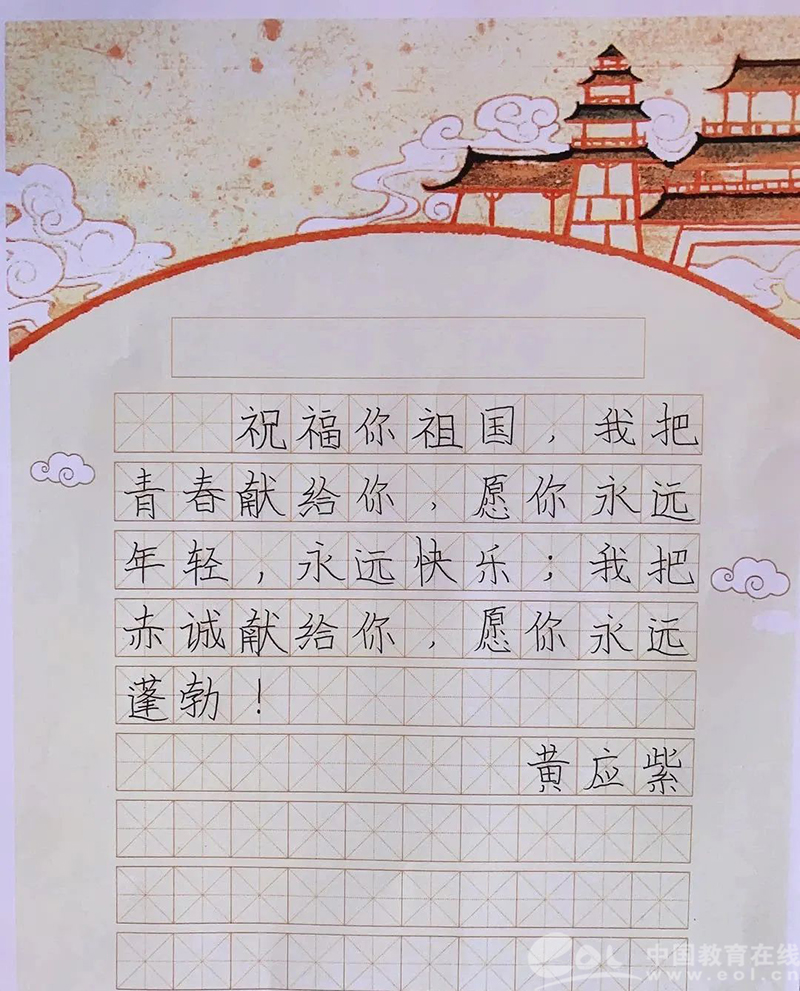 祝福你祖国，我把
青春献给你，愿你永远
年轻，永远快乐；我把
赤诚献给你，愿你永远
蓬勃！
黄应紫
eol 中国教育在线
www.eol.cn